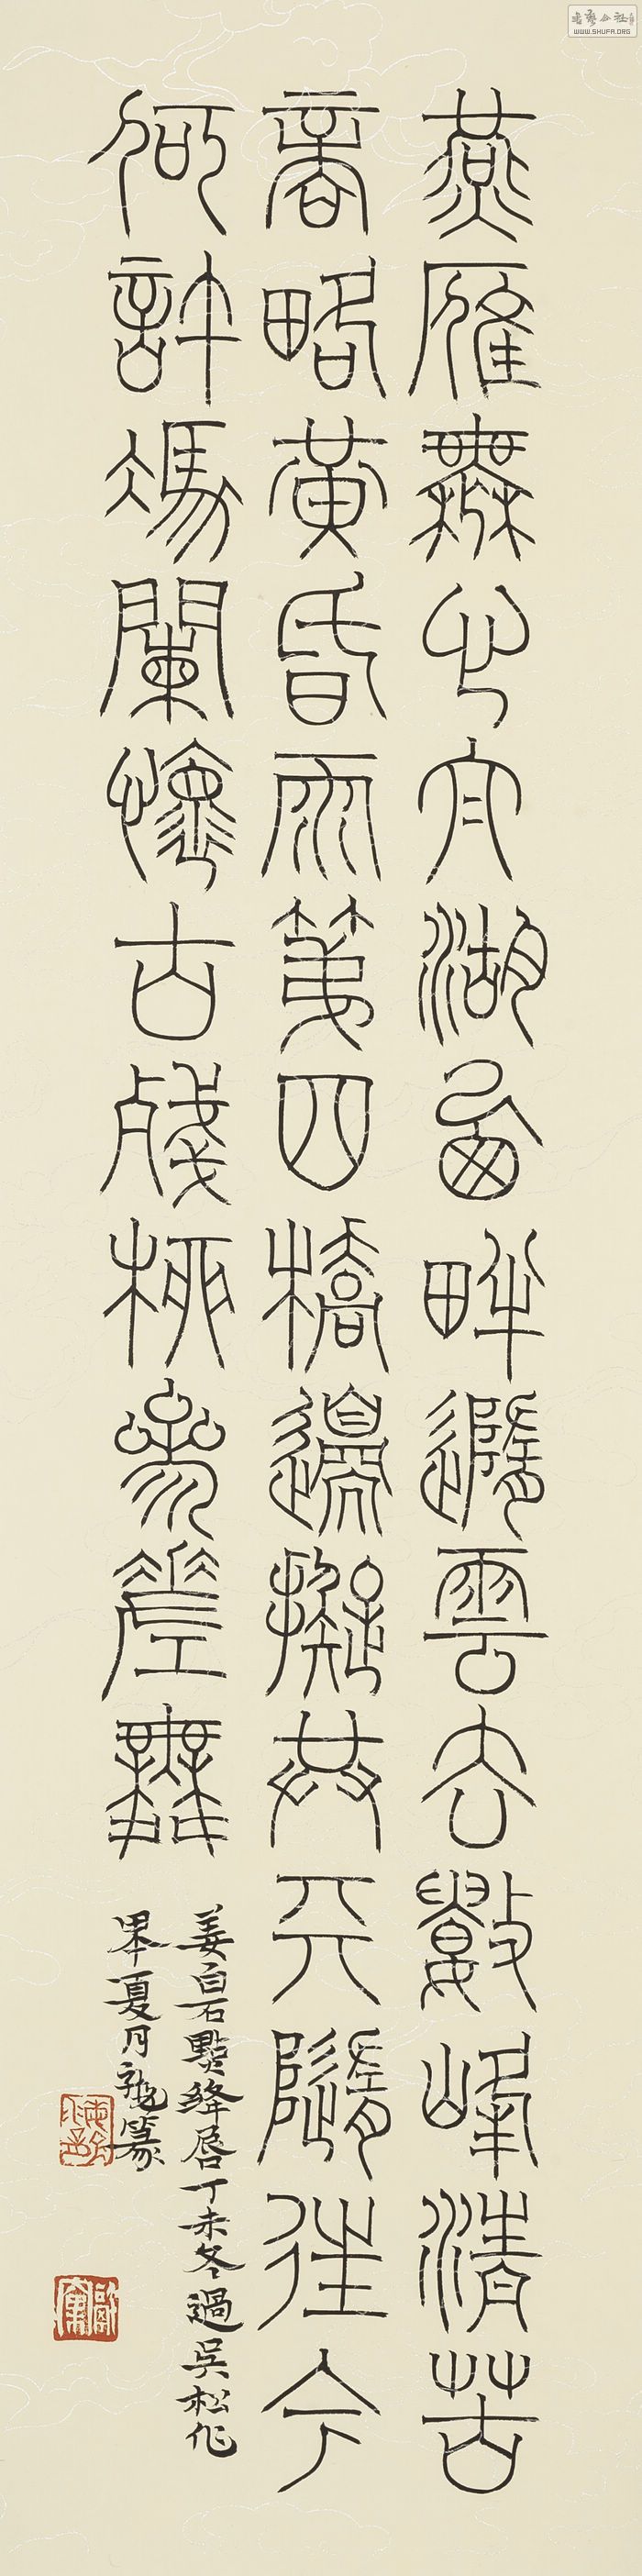 燕雁無心太湖西畔隨雲去數峰清苦
商略黃昏雨第四橋邊擬共天隨住今
何許憑闌懷古殘柳參差舞
姜白石點絳唇丁未冬過吳松作
夏月
篆
WWW.SHUFA.ORG